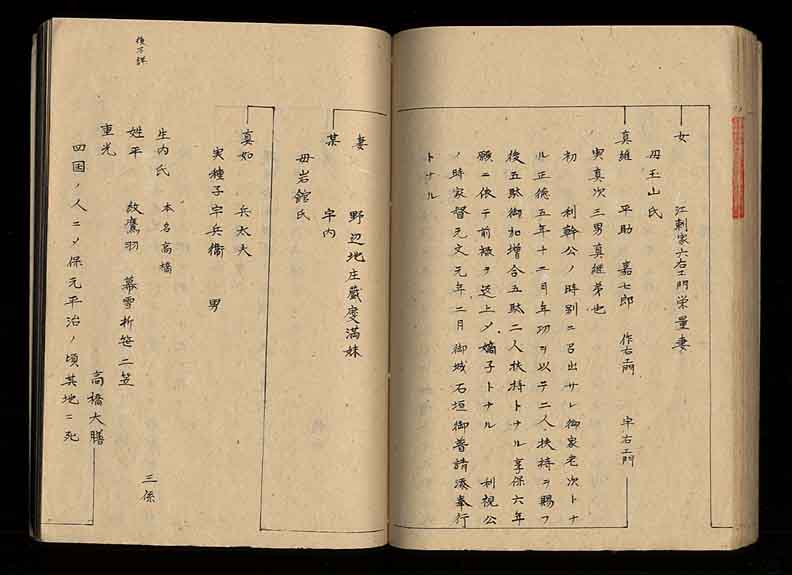 女　江刺家六右エ門栄量妻
母玉山氏
真維　平助　嘉七郎　作右エ門　宇右エ門
実真次三男真継弟也
初　利幹公ノ時別ニ召出サレ御家老次トナ
ル正徳五年十二月年功ヲ以テ二人扶持ヲ賜フ
後五駄御加増合五駄二人扶持トナル享保六年
願ニ依テ前禄ヲ返上〆嫡子トナル　利視公
ノ時家督元文元年二月御城石垣御普請添奉行
トナル
妻　野辺地庄蔵慶満妹
某　宇内
母岩館氏
真如　兵太夫
実種子宇兵衛　男
後不詳
生内氏　本名高橋
姓平　紋鷹羽　幕雪折笹二笠　三係
重光　高橋大膳
四国ノ人ニ〆保元平治ノ頃其地ニ死